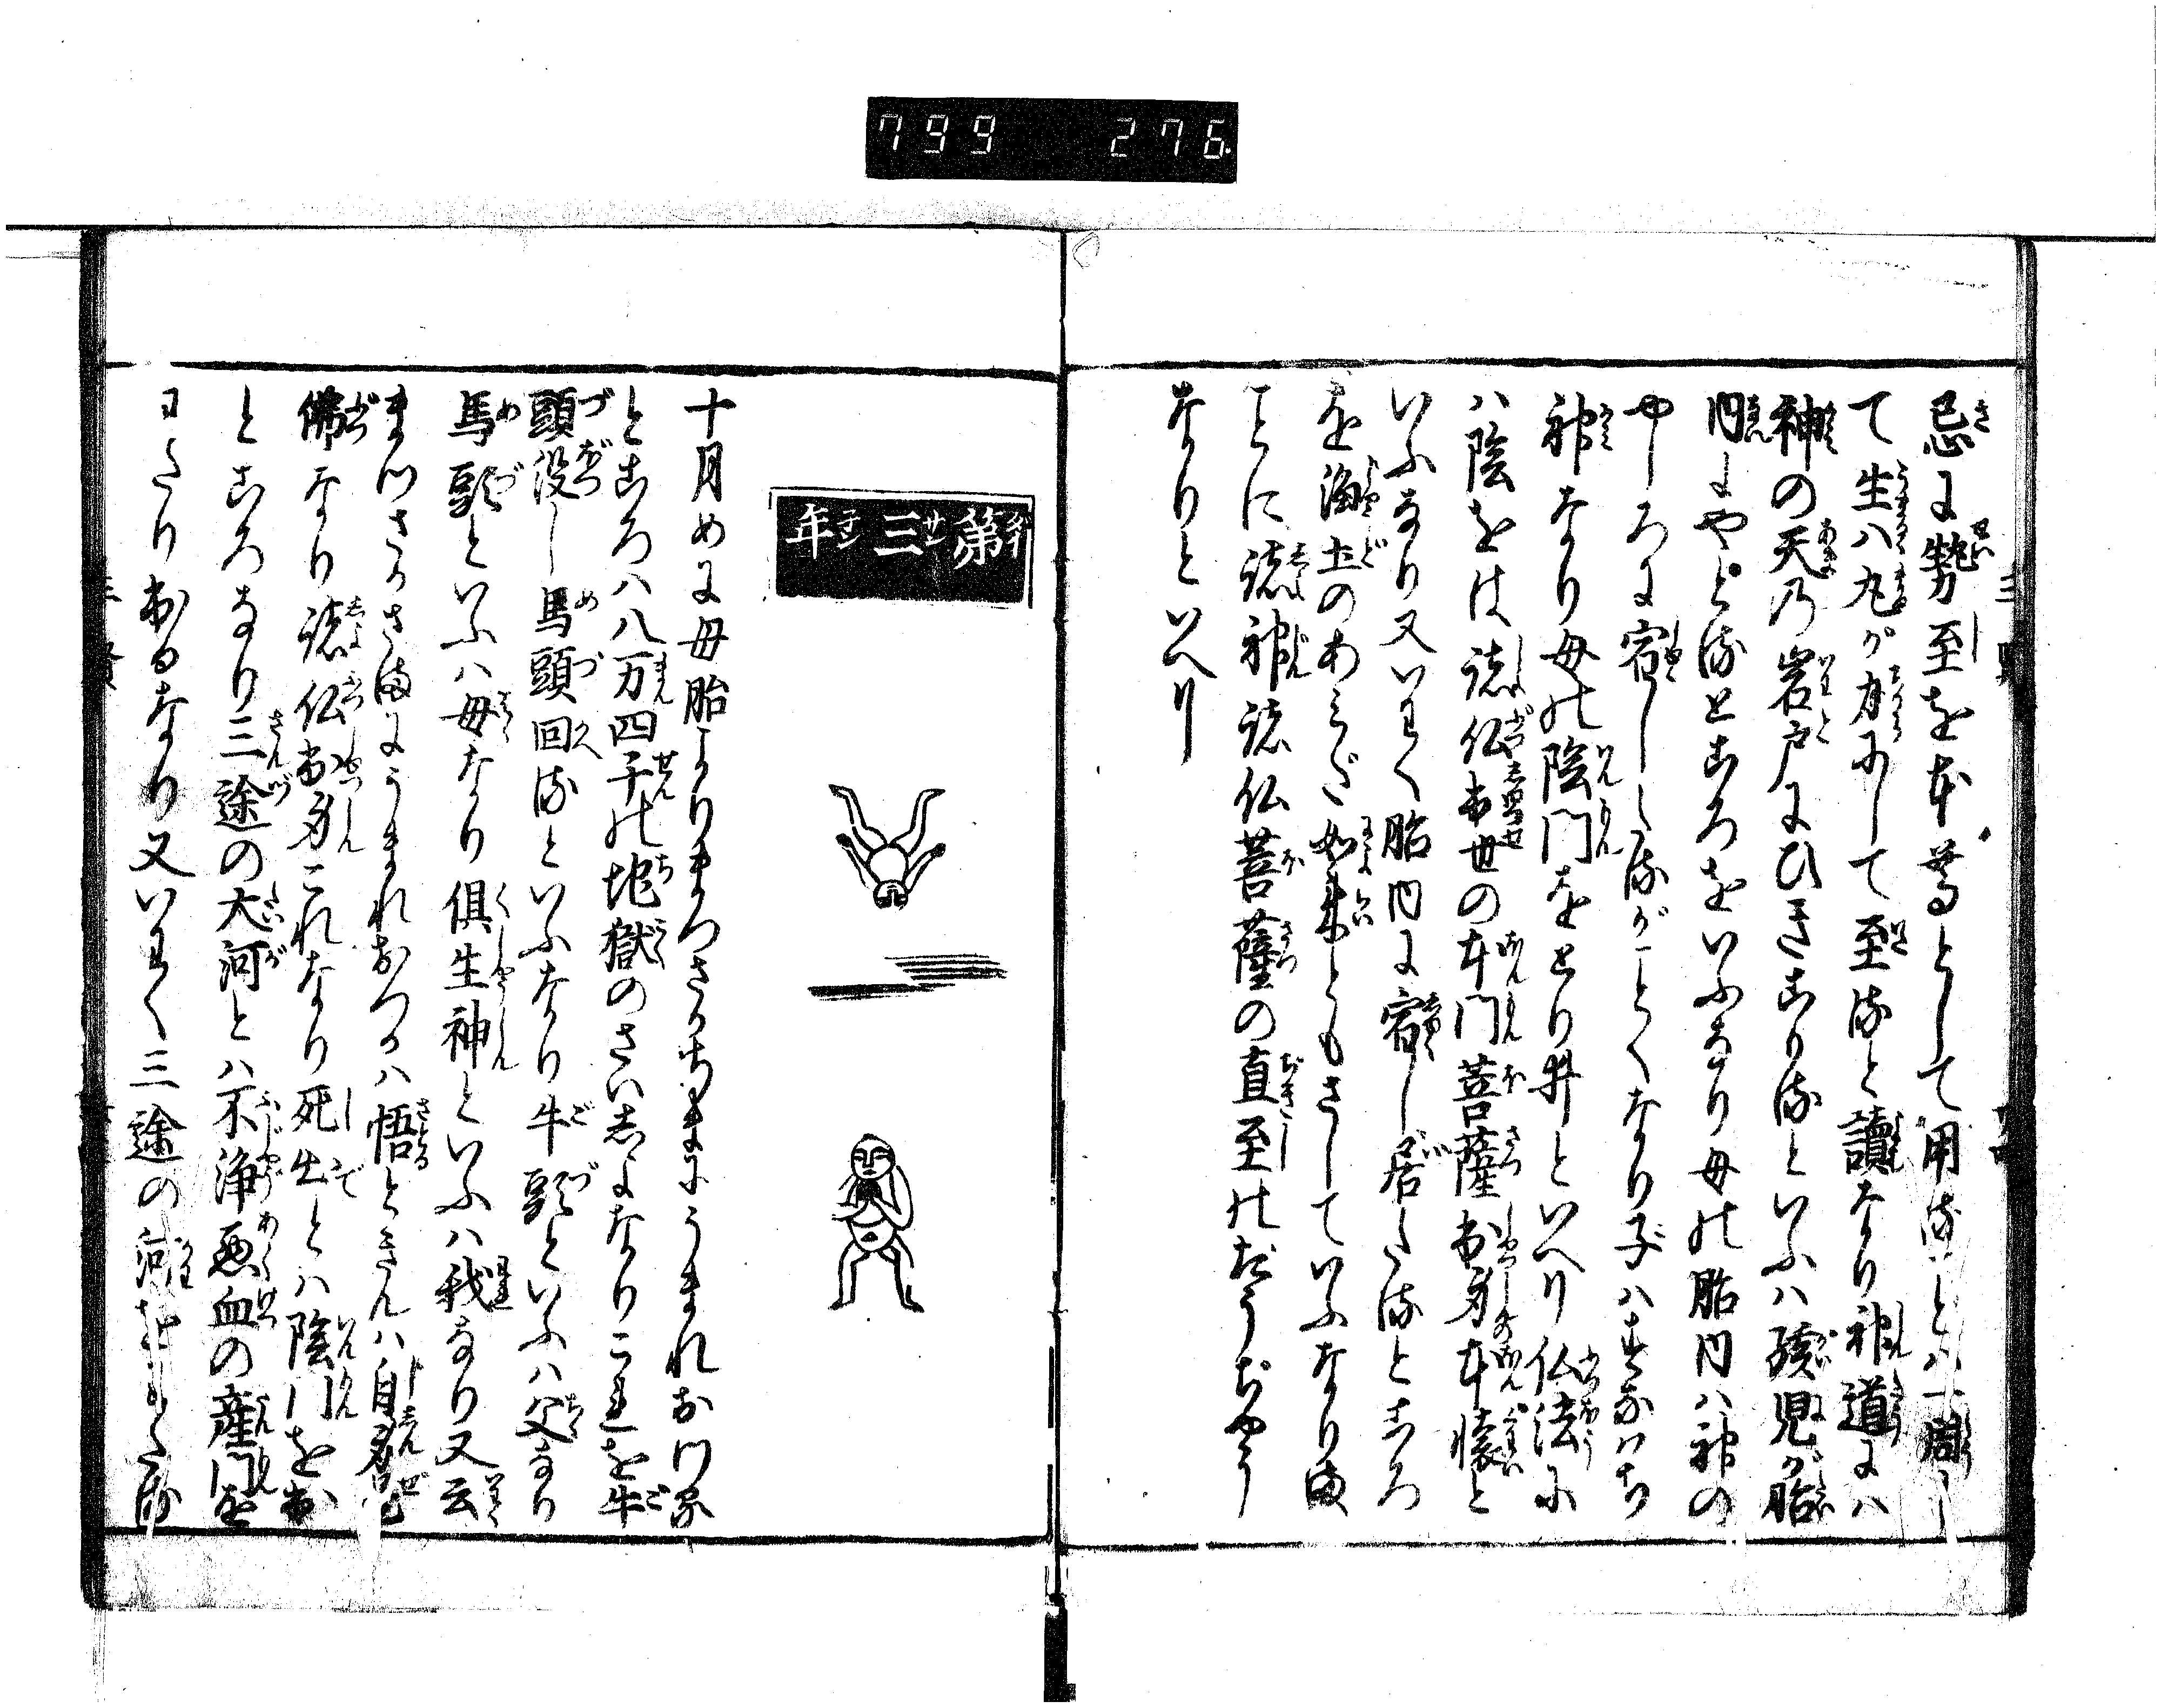 799 276
忌に勢至を本尊として用ることハ一周に
て生ハ九が力にして至ると讀なり神道にハ
神の天乃岩戸にひきこもるといふハ孩児が胎
内にやどるところをいふなり母の胎内ハ神の
やしろに宿し
神なり母の陰門をとり井といへり仏法に
ハ陰をは諸仏出世の本門菩薩出身本懐と
いふなり又いわく胎内に宿し居たるところ
を浄土のあみだ如来ともさしていふなりま
ことに諸神諸仏菩薩の直至のだうぢやう
なりといへり
第三年
十月めに母胎よりまつさかさまにうまれおつる
ところハ八万四千の地獄のさいしよなりこれを牛
頭没し馬頭回るといふなり牛頭といふハ父なり
馬頭といふハ母なり倶生神といふハ我なり又云
まつさかさまにうまれおつるハ悟ときんハ自身
佛なり諸仏出身これなり死出とハ陰門を出
ところなり三途の大河とハ不浄悪血の産門を
わたり出るなり又いわく三途の河を